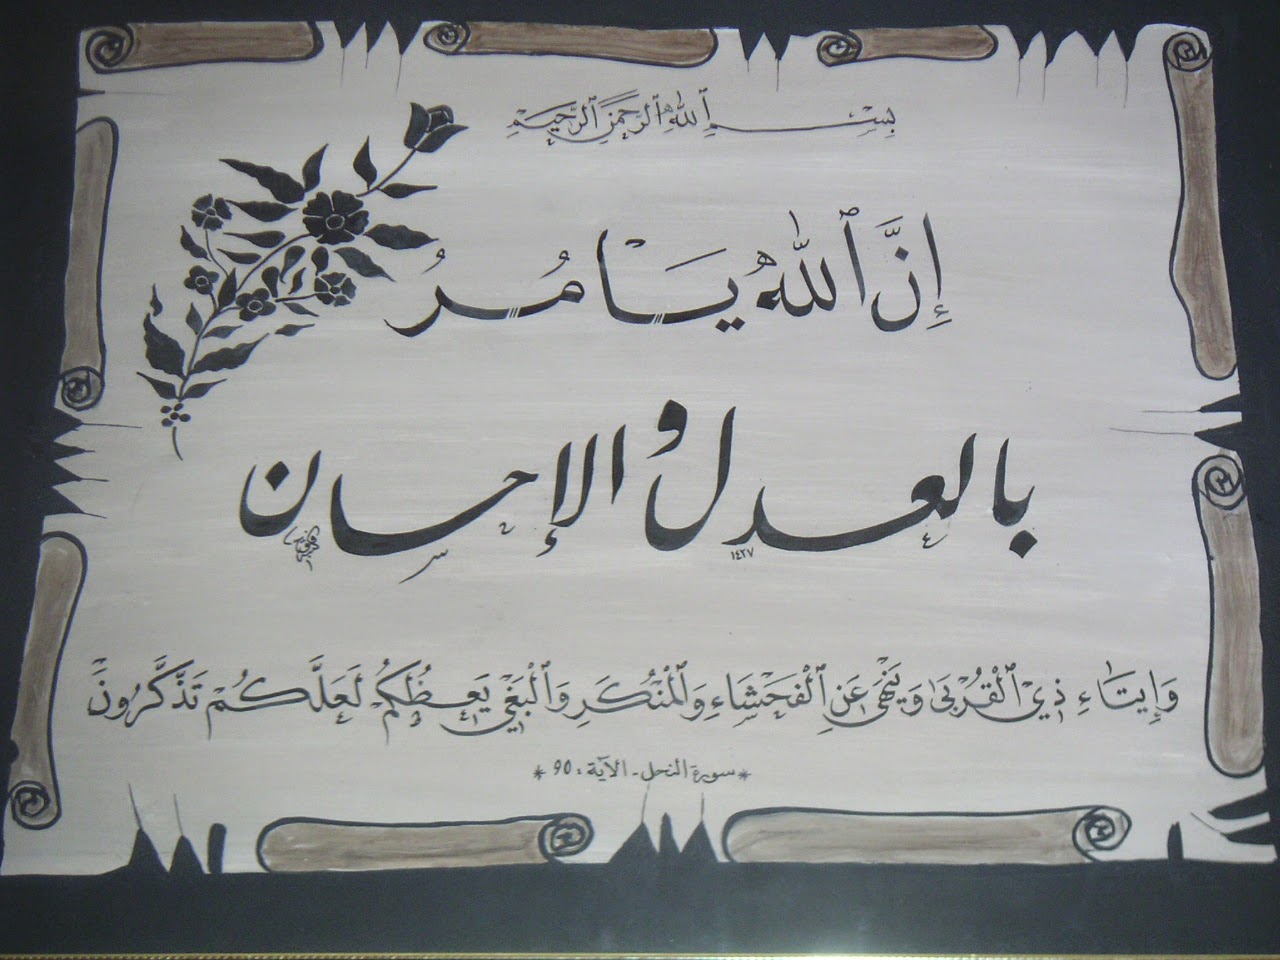 بِسْمِ ٱللَّهِ ٱلرَّحْمَٰنِ ٱلرَّحِيمِ
إِنَّ ٱللَّهَ يَأْمُرُ
بالعدل والإحسان
١٤٢٧
وَإِيتَاءِ ذِي ٱلْقُرْبَىٰ وَيَنْهَىٰ عَنِ ٱلْفَحْشَاءِ وَٱلْمُنْكَرِ وَٱلْبَغْيِ يَعِظُكُمْ لَعَلَّكُمْ تَذَكَّرُونَ
* سورة النحل - الآية : ٩٥ *